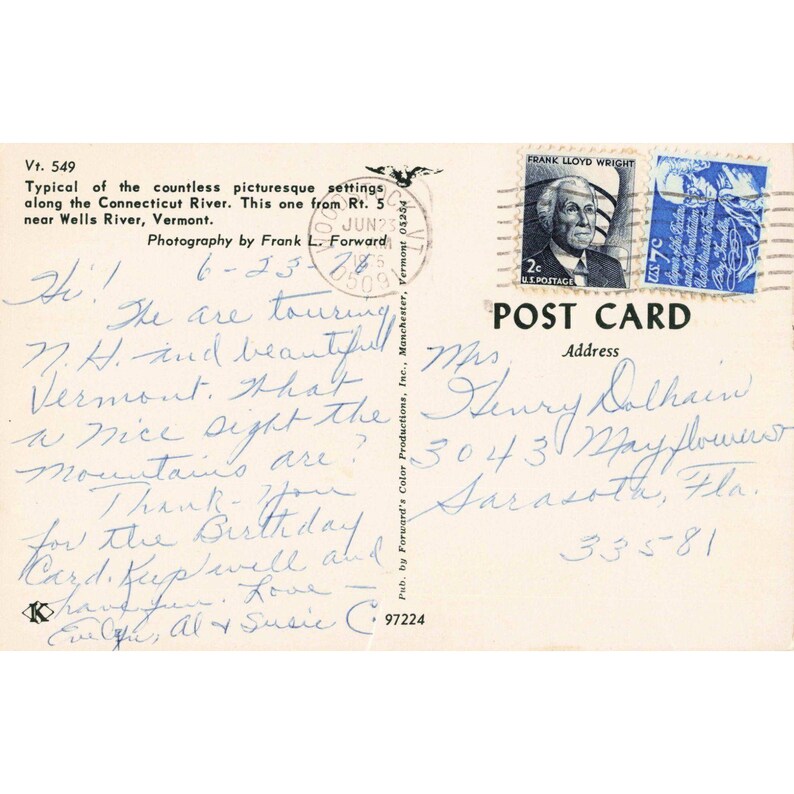 Vt. 549
Typical of the countless picturesque settings
along the Connecticut River. This one from Rt. 5
near Wells River, Vermont.
Photography by Frank L. Forward
6-23-76
Hi!
We are touring
N.H. and beautiful
Vermont. What
a nice sight the
mountains are?
Thank-you
for the Birthday
Card. Keep well and
have fun. Love -
Evelyn, Al & Susie C.
K
97224
Pub. by Forward's Color Productions, Inc., Manchester, Vermont 05254
WOODSTOCK, VT
JUN 23
1976
FRANK LLOYD WRIGHT
2c
U.S. POSTAGE
U.S. 7c
POST CARD
Address
Mrs.
Henry Dolhain
3043 Mayflower
Sarasota, Fla.
33581